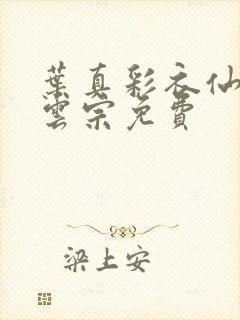 葉真彩衣仙
雲宗免費
梁上安